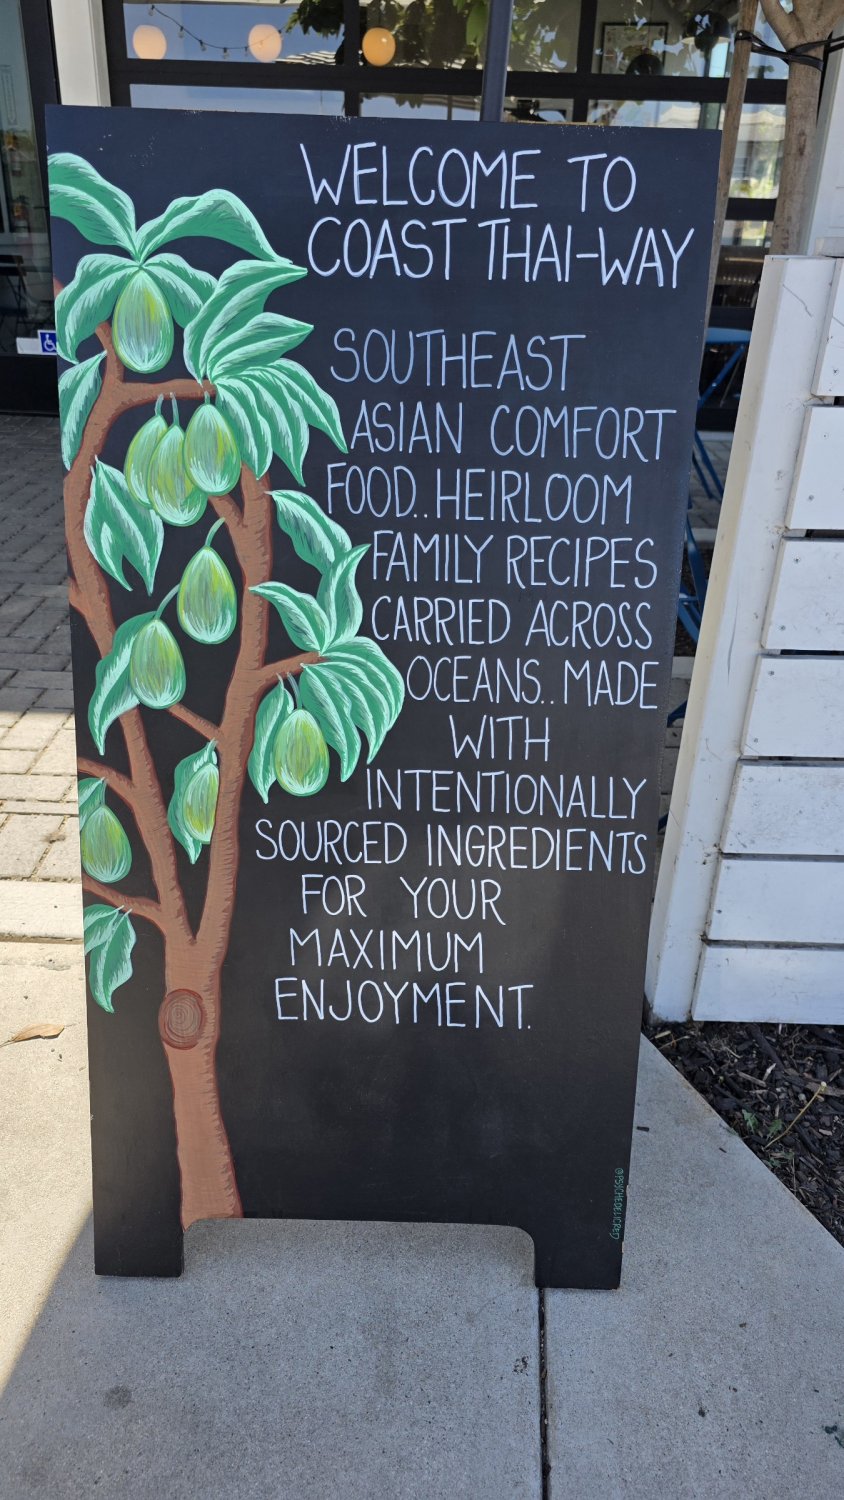 WELCOME TO
COAST THAI-WAY
SOUTHEAST
ASIAN COMFORT
FOOD..HEIRLOOM
FAMILY RECIPES
CARRIED ACROSS
OCEANS..MADE
WITH
INTENTIONALLY
SOURCED INGREDIENTS
FOR YOUR
MAXIMUM
ENJOYMENT.